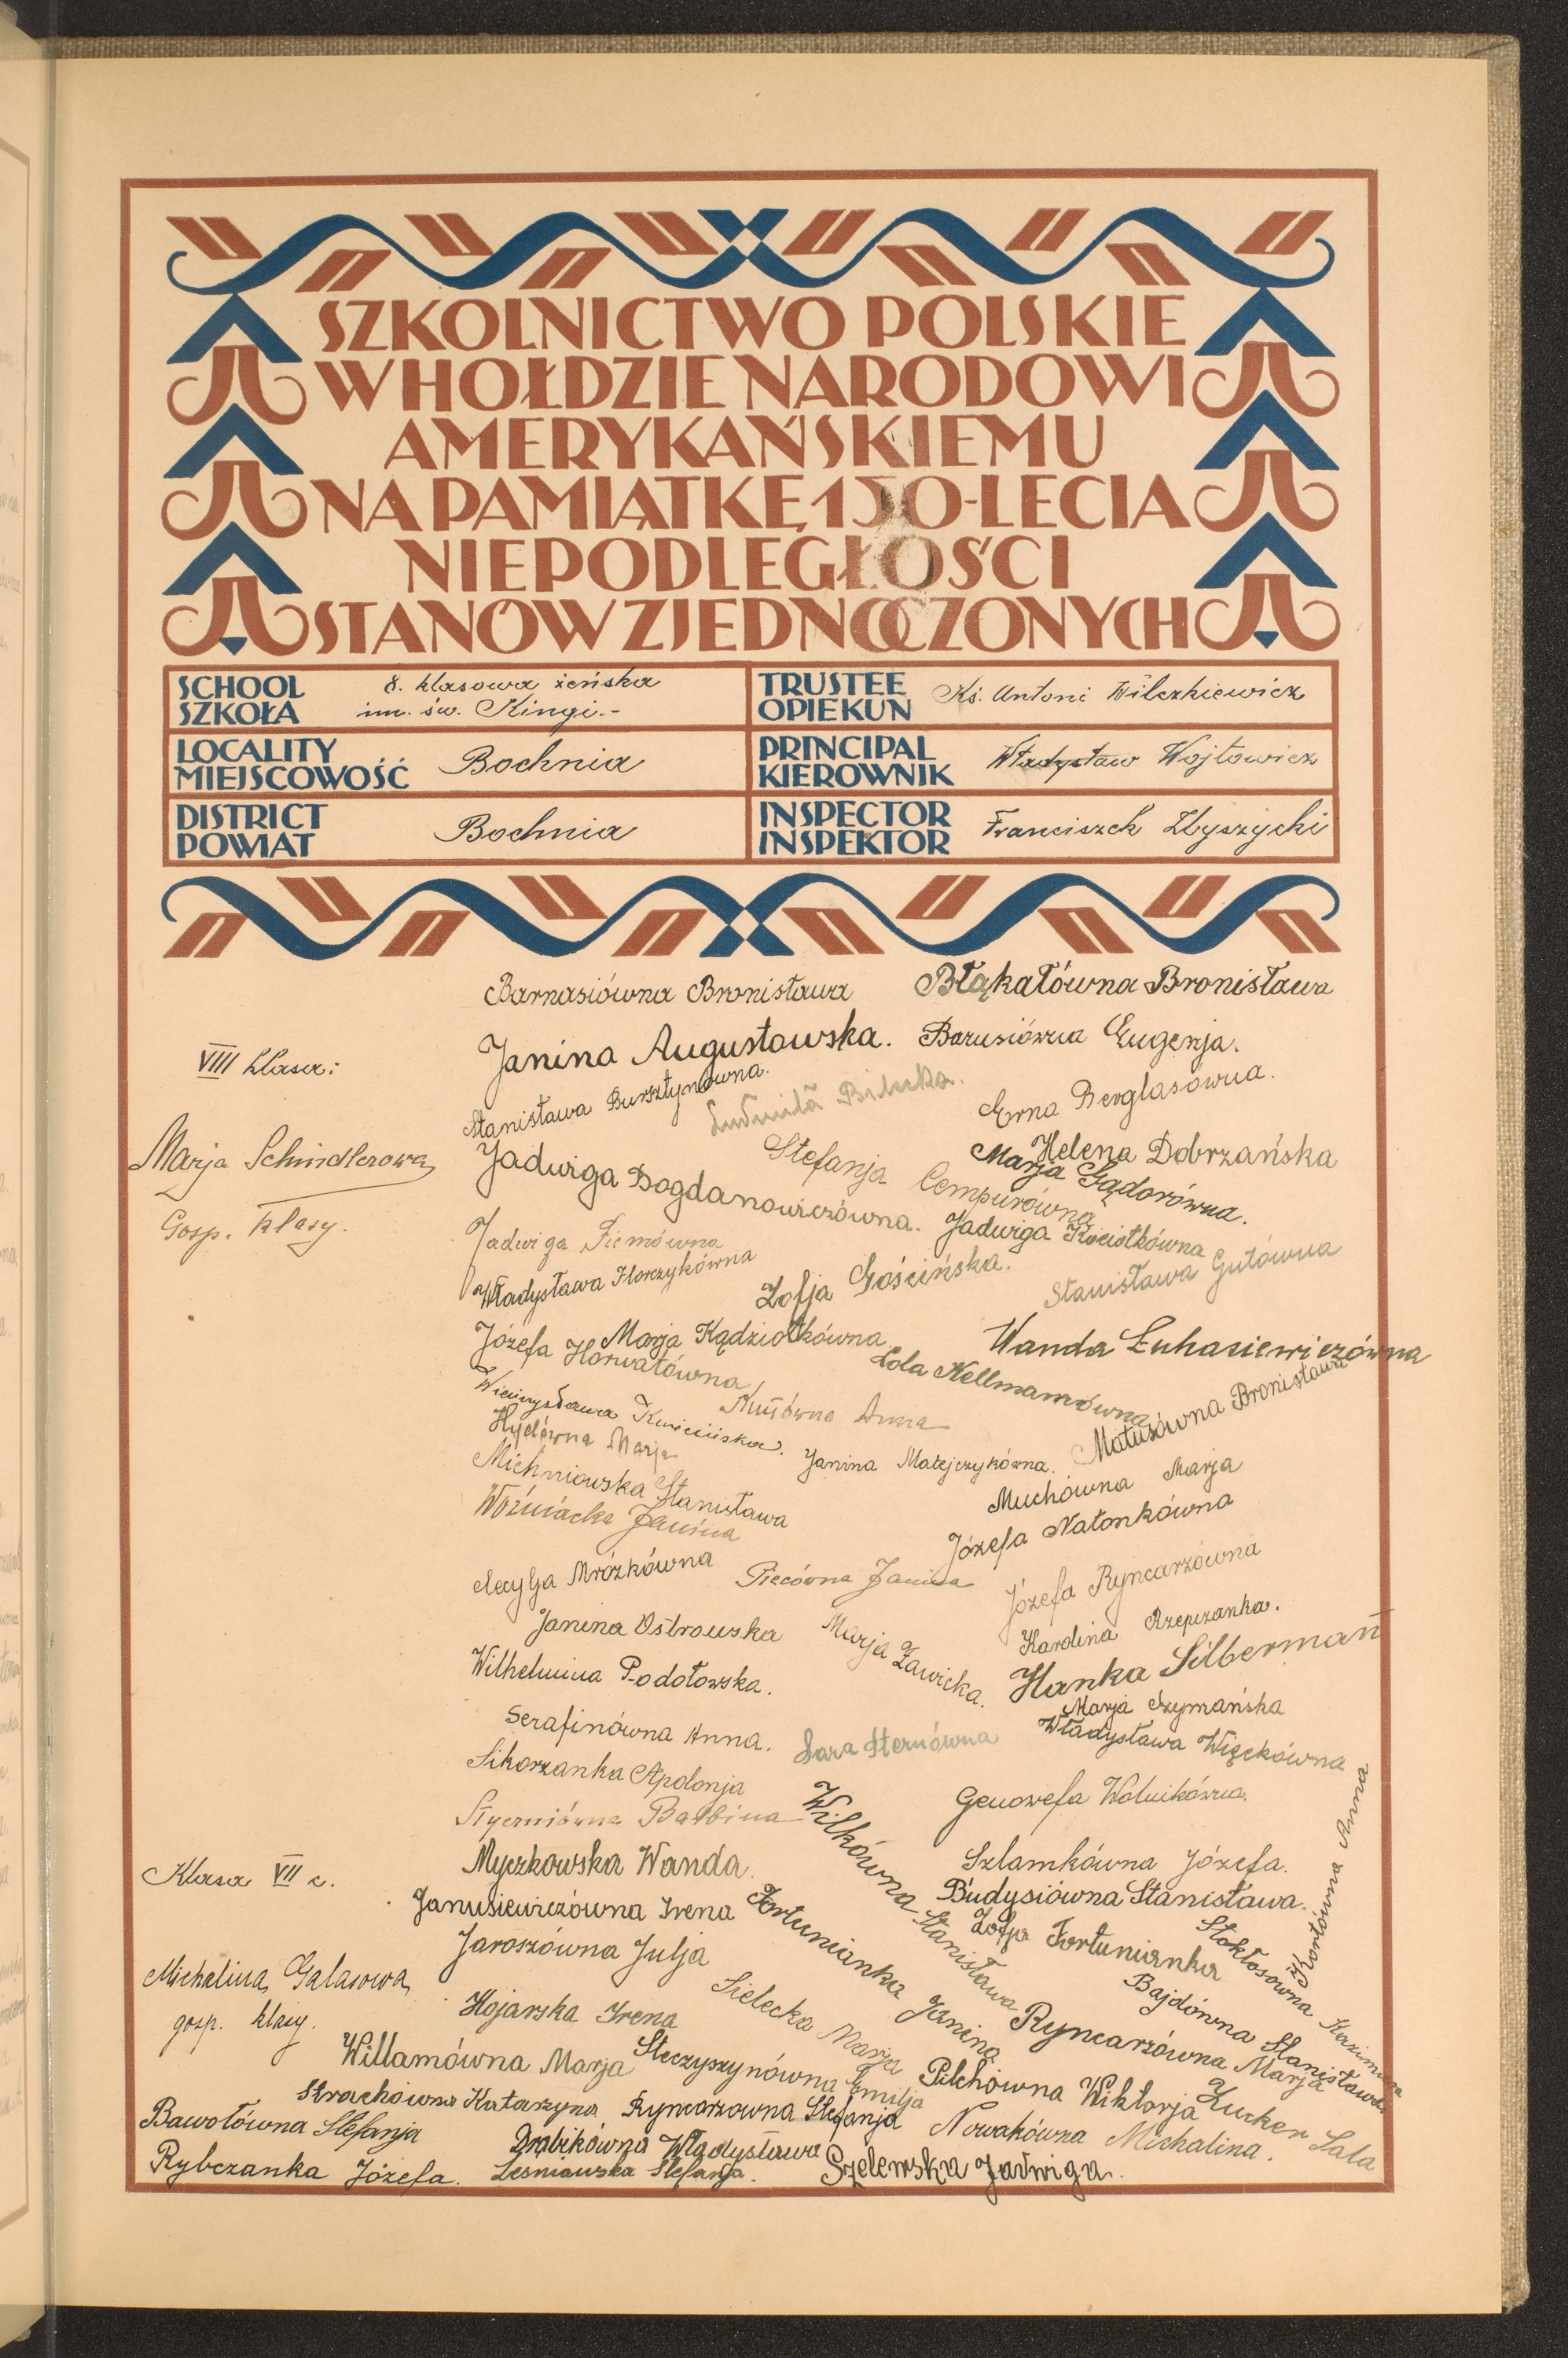 SZKOLNICTWO POLSKIE
W HOŁDZIE NARODOWI
AMERYKAŃSKIEMU
NA PAMIĄTKĘ 150-LECIA
NIEPODLEGŁOŚCI
STANÓW ZJEDNOCZONYCH
SCHOOL
SZKOŁA
8. klasowa żeńska
im. św. Kingi.-
TRUSTEE
OPIEKUN
Ks. Antoni Wilczkiewicz
LOCALITY
MIEJSCOWOŚĆ
Bochnia
PRINCIPAL
KIEROWNIK
Władysław Wojtowicz
DISTRICT
POWIAT
Bochnia
INSPECTOR
INSPEKTOR
Franciszek Zbyszycki
Barnasiówna Bronisława
Błąkałówna Bronisława
VIII klasa:
Janina Augustowska.
Barusiówna Eugenja.
Stanisława Bursztynówna.
Ludmiła Bilecka.
Erna Berglasówna.
Marja Schindlerowa
Gosp. klasy.
Jadwiga Bogdanowiczówna.
Stefanja Cempurówna
Helena Dobrzańska
Marja Gądorówna.
Jadwiga Fiemówna
Jadwiga Kociołkówna
Władysława Florczykówna
Zofja Gościńska.
Stanisława Gutówna
Józefa Horwatówna
Marja Kądziołkówna
Wanda Łukasiewiczówna
Lola Kellmanówna
Wieńczysława Kwiecińska.
Anna
Matusówna Bronisława
Hydówna Marja
Janina Matejczykówna.
Michniowska Stanisława
Muchówna Marja
Woźniacka Janina
Józefa Natonkówna
Cecylja Mrózkówna
Piecówna Janina
Józefa Ryncarzówna
Janina Ostrowska
Marja Zawicka.
Karolina Rzepczanka.
Wilhelmina Podołowska.
Hanka Silberman
Marja Szymańska
Serafinówna Anna.
Sara Sternówna
Władysława Więckówna
Sikorzanka Apolonja
Styerniówna Balbina
Wilkówna Stanisława
Genowefa Wolnikówna.
Klasa VII c.
Myczkowska Wanda.
Szlamkówna Józefa.
Janusiewiczówna Irena
Fortunianka Janina
Budysiówna Stanisława.
Jaroszówna Julja
Zofja Fortunianka
Stokłosówna Kazimiera
Kortówna Anna
Michalina Galasowa
gosp. klasy.
Kojarska Irena
Sielecka Marja
Bajdówna Stanisława
Ryncarzówna Marja
Willamówna Marja
Steczyszynówna Emilja
Pilchówna Wiktorja
Zucker Sala
Strachówna Katarzyna
Ryncarzówna Stefanja
Nowakówna Michalina.
Bawołówna Stefanja
Drabikówna Władysława
Rybczanka Józefa.
Leśniowska Stefanja.
Szelewska Jadwiga.